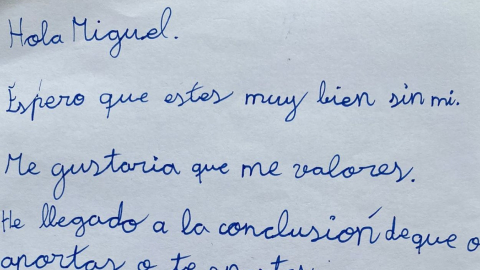 Hola Miguel.
Éspero que estes muy bien sin mi.
Me gustaria que me valores.
He llegado a la conclusión de que o
aportas o te